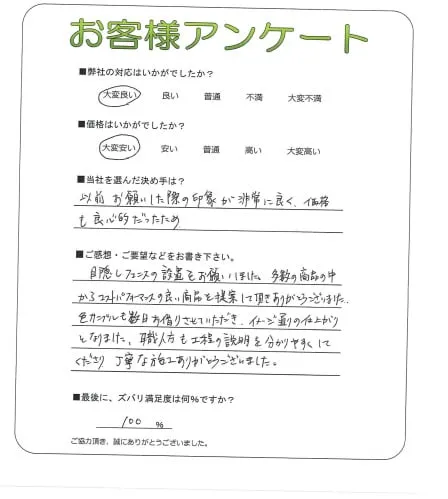 お客様アンケート
■弊社の対応はいかがでしたか？
大変良い 良い 普通 不満 大変不満
■価格はいかがでしたか？
大変安い 安い 普通 高い 大変高い
■当社を選んだ決め手は？
以前お願いした際の印象が非常に良く、価格
も良心的だったため
■ご感想・ご要望などをお書き下さい。
目隠しフェンスの設置をお願いしました。多数の商品の中
からコストパフォーマンスの良い商品を提案して頂きありがとうございました。
色サンプルも数日お借りさせていただき、イメージ通りの仕上がり
となりました。職人方も工程の説明を分かりやすくして
くださり丁寧な施工ありがとうございました。
■最後に、ズバリ満足度は何%ですか？
100 %
ご協力頂き、誠にありがとうございました。